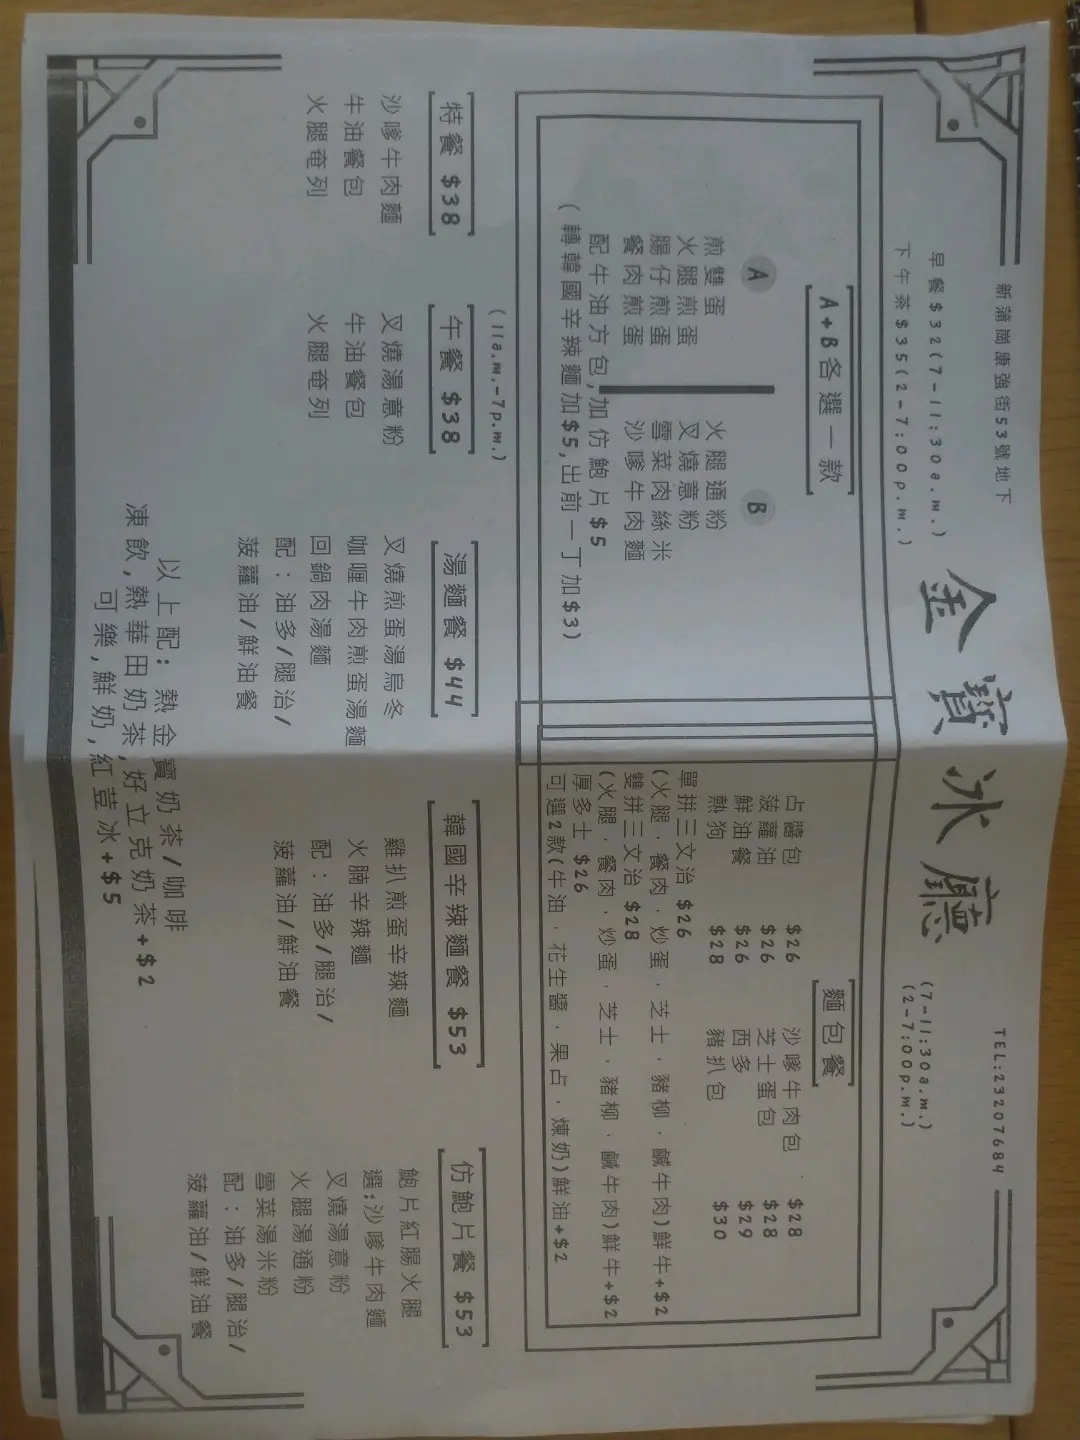 新蒲崗康強街53號地下
TEL:23207684
金寶冰廳
早餐$32(7-11:30a.m.)
下午茶$35(2-7:00p.m.)
(7-11:30a.m.)
(2-7:00p.m.)
A+B各選一款
A
煎雙蛋
火腿煎蛋
腸仔煎蛋
餐肉煎蛋
B
火腿通粉
叉燒意粉
雪菜肉絲米
沙嗲牛肉麵
配牛油方包,加仿鮑片$5
(轉韓國辛辣麵加$5,出前一丁加$3)
麵包餐
占醬包 $26
菠蘿油 $26
鮮油餐 $26
熱狗 $28
沙嗲牛肉包 $28
芝士蛋包 $28
西多 $29
豬扒包 $30
單拼三文治 $26
(火腿．餐肉．炒蛋．芝士．豬柳．鹹牛肉)鮮牛+$2
雙拼三文治 $28
(火腿．餐肉．炒蛋．芝士．豬柳．鹹牛肉)鮮牛+$2
厚多士 $26
可選2款(牛油．花生醬．果占．煉奶)鮮油+$2
特餐 $38
沙嗲牛肉麵
牛油餐包
火腿奄列
(11a.m.-7p.m.)
午餐 $38
叉燒湯意粉
牛油餐包
火腿奄列
湯麵餐 $44
叉燒煎蛋湯烏冬
咖喱牛肉煎蛋湯麵
回鍋肉湯麵
配：油多/腿治/
菠蘿油/鮮油餐
韓國辛辣麵餐 $53
雞扒煎蛋辛辣麵
火腩辛辣麵
配：油多/腿治/
菠蘿油/鮮油餐
仿鮑片餐 $53
鮑片紅腸火腿
選:沙嗲牛肉麵
叉燒湯意粉
火腿湯通粉
雪菜湯米粉
配：油多/腿治/
菠蘿油/鮮油餐
以上配：熱金寶奶茶/咖啡
凍飲,熱華田奶茶,好立克奶茶+$2
可樂,鮮奶,紅荳冰+$5